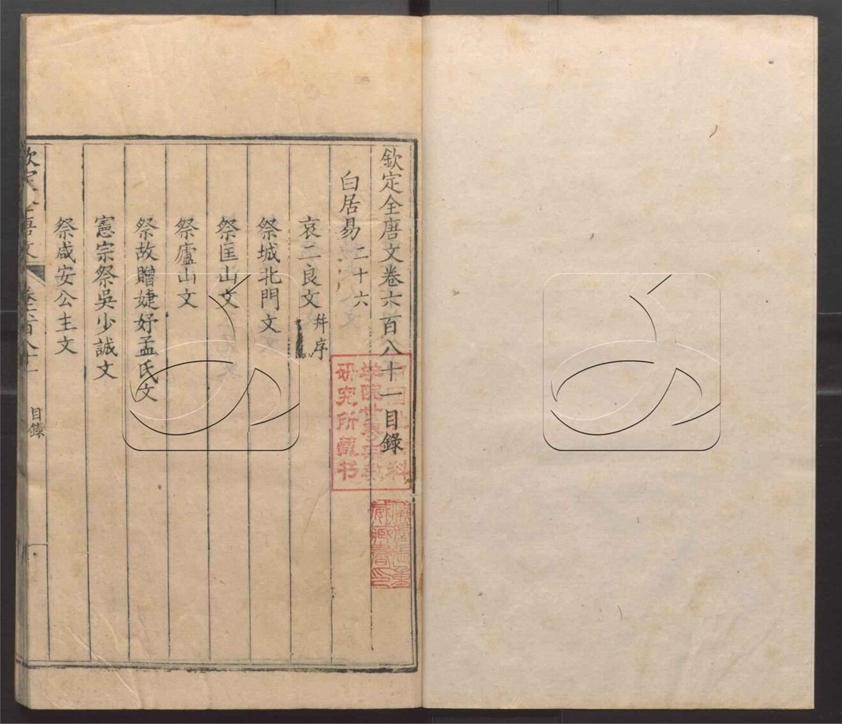 欽定全唐文卷六百八十一目錄
白居易二十六
哀二良文并序
祭城北門文
祭匡山文
祭廬山文
祭故贈婕妤孟氏文
憲宗祭吳少誠文
祭咸安公主文
欽定全唐文 卷六百八十一 目錄
研究所藏书